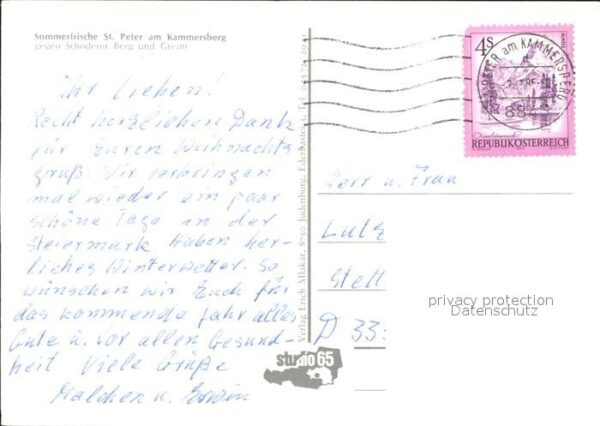 Sommerfrische St. Peter am Kammersberg
gegen Schoderer Berg und Greim
Ihr Lieben!
Recht herzlichen Dank
für Euren Weihnachts
gruß. Wir verbringen
mal wieder ein paar
schöne Tage in der
Steiermark. Haben her-
liches Winterwetter. So
wünschen wir Euch für
das kommende Jahr alles
Gute u. vor allen Gesund-
heit Viele Grüße
Malchen u. Erwin
Verlag Erich Mlakar, 8750 Judenburg,
studio 65
4 S
PETER am KAMMERSBERG
REPUBLIK ÖSTERREICH
Herr u. Frau
Lutz
Stell
D 33
privacy protection
Datenschutz